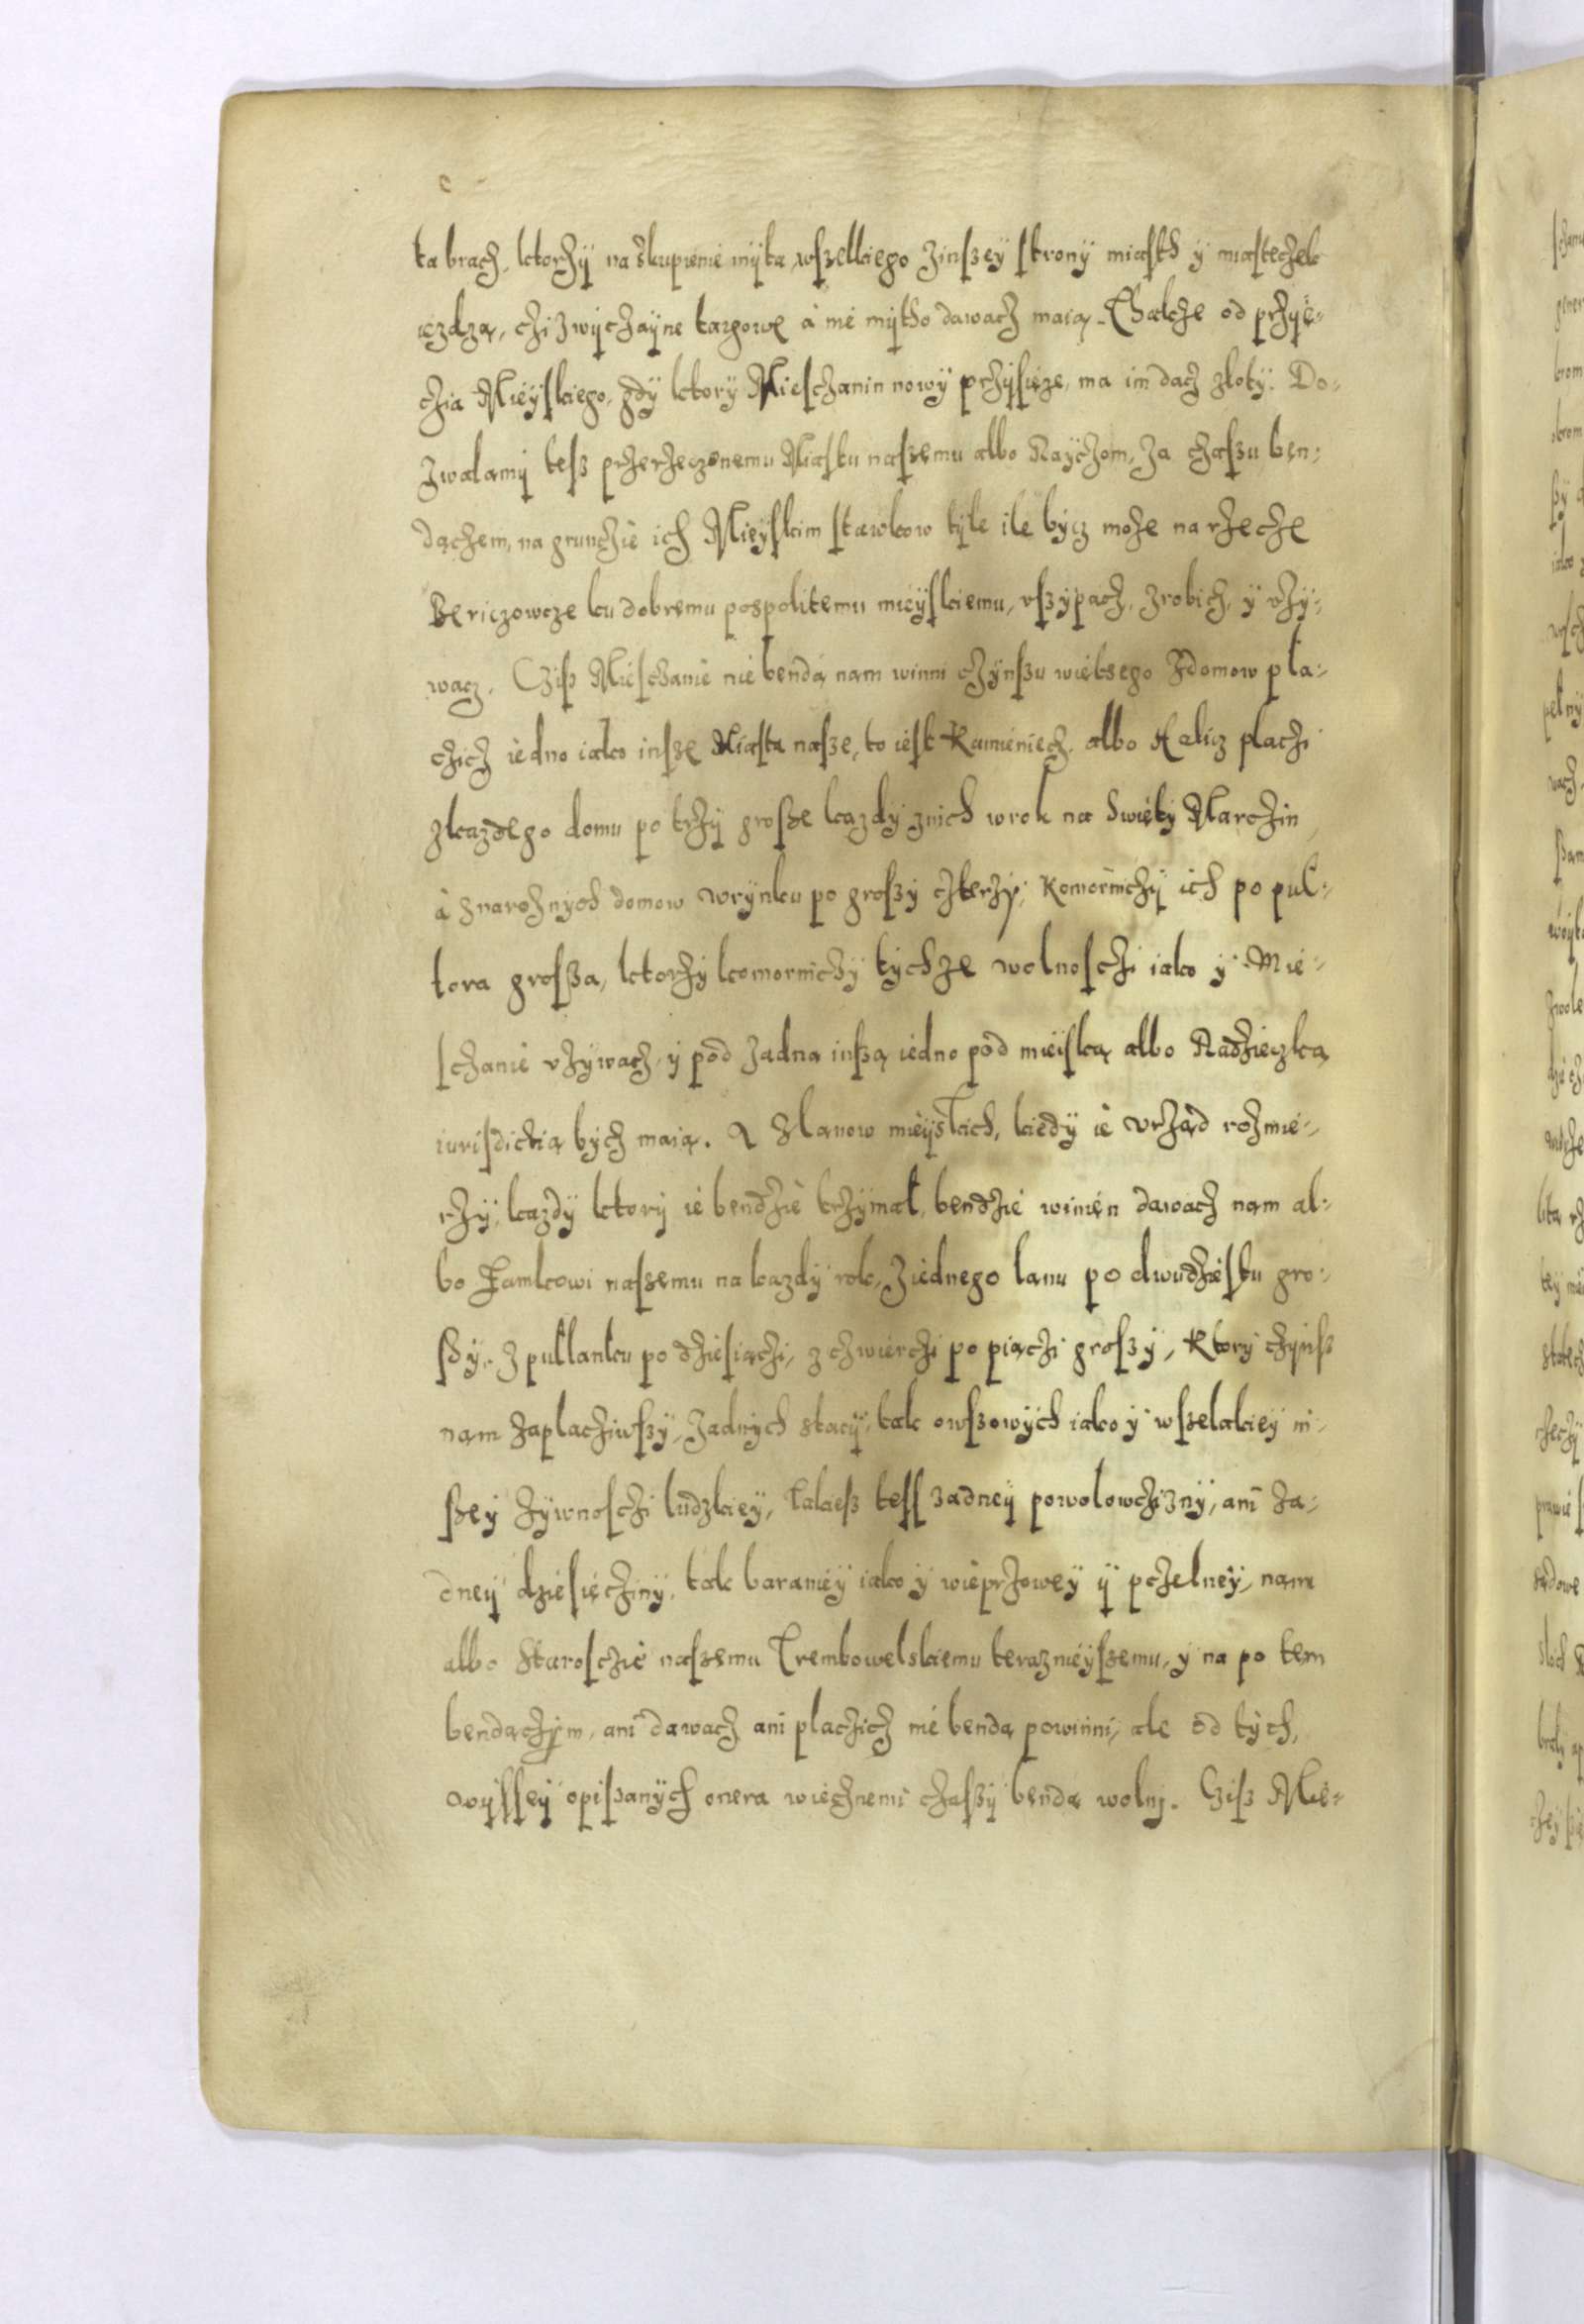 ta bracz, ktorzÿ na skupienie mÿta wſzelkiego zinſzeÿ ſtronÿ miaſth ÿ miaſteczek
iezdzą, czi zwÿczaÿne targowe à nie mÿtho dawacz maią. Thakze od przÿię-
czia Mieÿſkiego, gdÿ ktorÿ Mieſczanin nowÿ przÿſięze, ma im dacz złotÿ. Do-
zwalamÿ teſz przerzeczonemu Miaſtu naſzemu albo Rayczom, za czaſzu ben-
dączem, na grunczie ich Mieÿſkim ſtawkow tÿle ile bÿcz moze na rzecze
Bericzowcze ku dobremu poſpolitemu mieÿſkiemu, vſzÿpacz, zrobicz, ÿ vzÿ-
wacz. Cziſz Mieſczanie nie bendą nam winni czÿnſzu wietsego Zdomow pla-
czicz iedno iako inſze Miaſta naſze, to ieſt Kamieniecz albo Halicz placzi
zkazdego domu po trzÿ groſze kazdÿ znich w rok na Swiętÿ Marczin,
à Znaroznÿch domow wrÿnku po groſzÿ czterzÿ, Komorniczÿ ich po pul-
tora groſza, ktorzÿ komorniczÿ tÿchze wolnoſczi iako ÿ Mie-
ſczanie vzÿwacz ÿ pod zadna inſzą iedno pod mieiſką albo Radzieczką
iuriſdictią bÿcz maią. A Zlanow mieÿſkich, kiedÿ ie vrząd rozmie-
rzÿ, kazdÿ ktorÿ ie bendzie trzÿmał, bendzie winien dawacz nam al-
bo Zamkowi naſzemu na kazdÿ rok, Ziednego lanu po dwudzieſtu gro-
ſzÿ, Z pullanku po dzieſiączi, z czwierczi po piączi groſzÿ, Ktorÿ czÿnſz
nam zaplacziwſzÿ, zadnÿch stacÿ, tak owſzowÿch iako ÿ wſzelakieÿ in-
ſzeÿ zÿwnoſczi ludzkieÿ, Takieſz teſſ zadneÿ powolowczizni, ani za-
dneÿ dzieſięczinÿ, tak baranieÿ iako ÿ wieprzoweÿ ÿ pczelneÿ, nam
albo Staroſczie naſzemu Trembowelskiemu teraznieÿſzemu, ÿ na po tem
bendączÿm, ani dawacz ani placzicz nie bendą powinni, ale od tÿch,
wÿſſeÿ opiſzanÿch onera wiecznemi czaſzÿ bendą wolnj. Cziſz Mie-